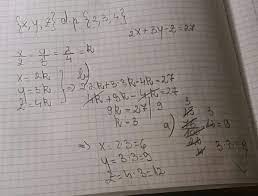 {x,y,z} d.p. {2,3,4}
2x+3y-z=27
x/2 = y/3 = z/4 = k
x=2k
y=3k
z=4k
b)
=> 2·2k+3·3k-4k=27
4k+9k-4k=27
9k=27 | 9
k=3
a)
=> x=2·3=6
y=3·3=9
z=4·3=12